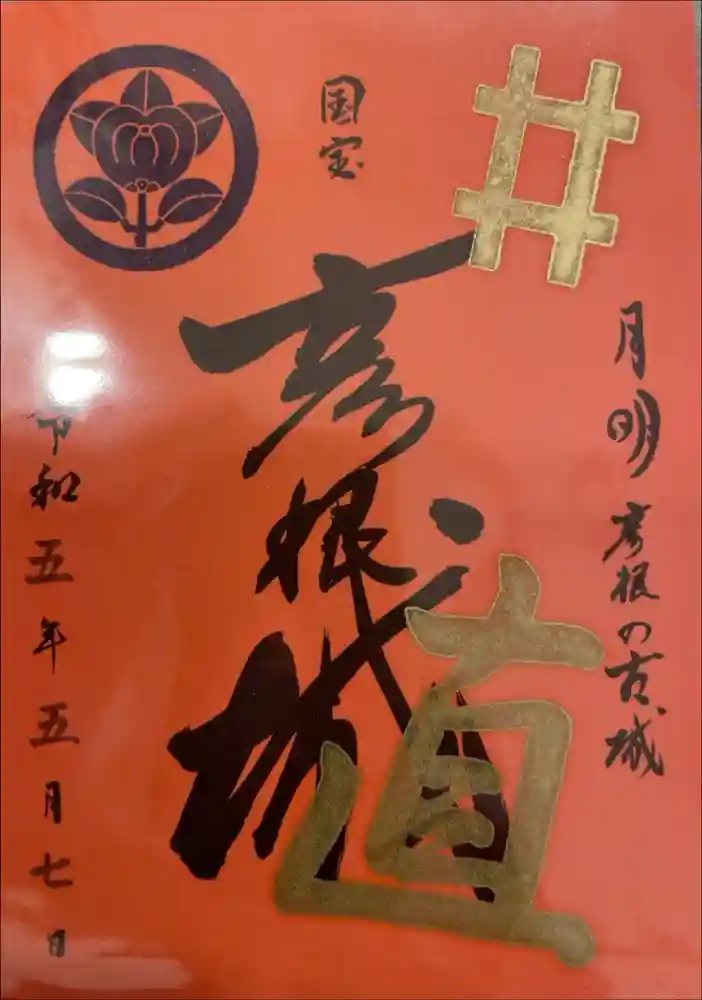 月明 彦根の古城
井
国宝
彦根城
直
令和五年五月七日